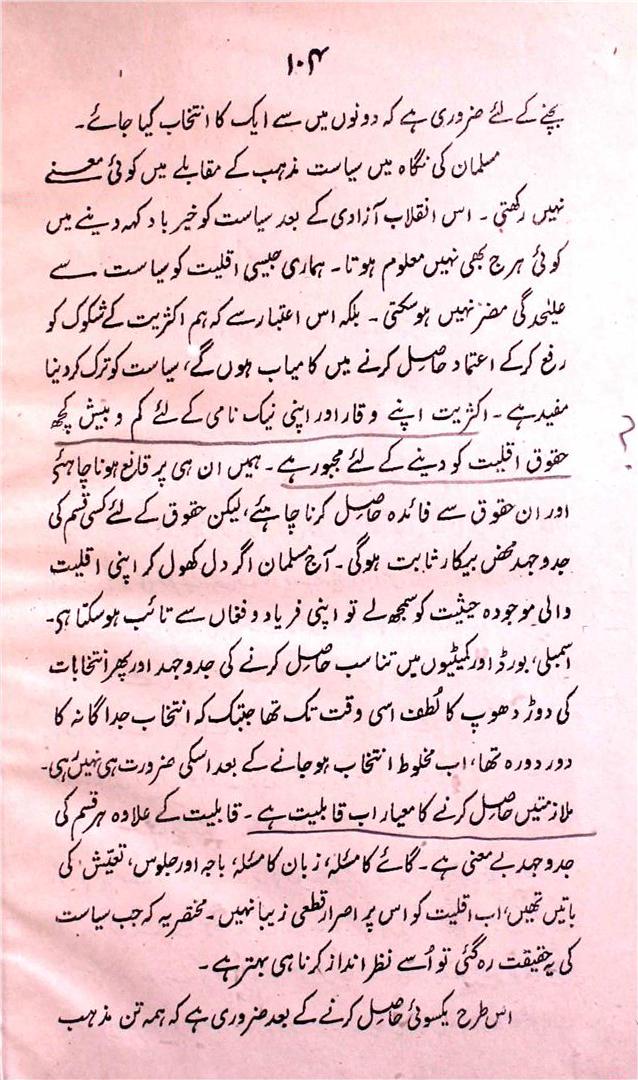 ۱۰۴
بچنے کے لئے ضروری ہے کہ دونوں میں سے ایک کا انتخاب کیا جائے۔
مسلمان کی نگاہ میں سیاست مذہب کے مقابلے میں کوئی معنے
نہیں رکھتی۔ اس انقلاب آزادی کے بعد سیاست کو خیر باد کہہ دینے میں
کوئی ہرج بھی نہیں معلوم ہوتا۔ ہماری جیسی اقلیت کو سیاست سے
علیٰحدگی مضر نہیں ہوسکتی۔ بلکہ اس اعتبار سے کہ ہم اکثریت کے شکوک کو
رفع کرکے اعتماد حاصِل کرنے میں کامیاب ہوں گے، سیاست کو ترک کردینا
مفید ہے۔ اکثریت اپنے وقار اور اپنی نیک نامی کے لئے کم و بیش کچھ
حقوق اقلیت کو دینے کے لئے مجبور ہے۔ ہمیں ان ہی پر قانع ہونا چاہئے
اور ان حقوق سے فائدہ حاصِل کرنا چاہئے، لیکن حقوق کے لئے کسی قسم کی
جدوجہد محض بیکار ثابت ہوگی۔ آج مسلمان اگر دل کھول کر اپنی اقلیت
والی موجودہ حیثیت کو سمجھ لے تو اپنی فریاد و فغاں سے تائب ہوسکتا ہی۔
اسمبلی، بورڈ اور کمیٹیوں میں تناسب حاصِل کرنے کی جدوجہد اور پھر انتخابات
کی دوڑ دھوپ کا لُطف اسی وقت تک تھا جبتک کہ انتخاب جداگانہ کا
دور دورہ تھا، اب مخلوط انتخاب ہوجانے کے بعد اسکی ضرورت ہی نہیں رہی۔
ملازمتیں حاصِل کرنے کا معیار اب قابلیت ہے۔ قابلیت کے علاوہ ہر قسم کی
جدوجہد بے معنی ہے۔ گائے کا مسئلہ، زبان کا مسئلہ، باجہ اور جلوس، تعیّش کی
باتیں تھیں، اب اقلیت کو اس پر اصرار قطعی زیبا نہیں۔ مختصر یہ کہ جب سیاست
کی یہ حقیقت رہ گئی تو اُسے نظر انداز کرنا ہی بہتر ہے۔
اس طرح یکسوئی حاصِل کرنے کے بعد ضروری ہے کہ ہمہ تن مذہب